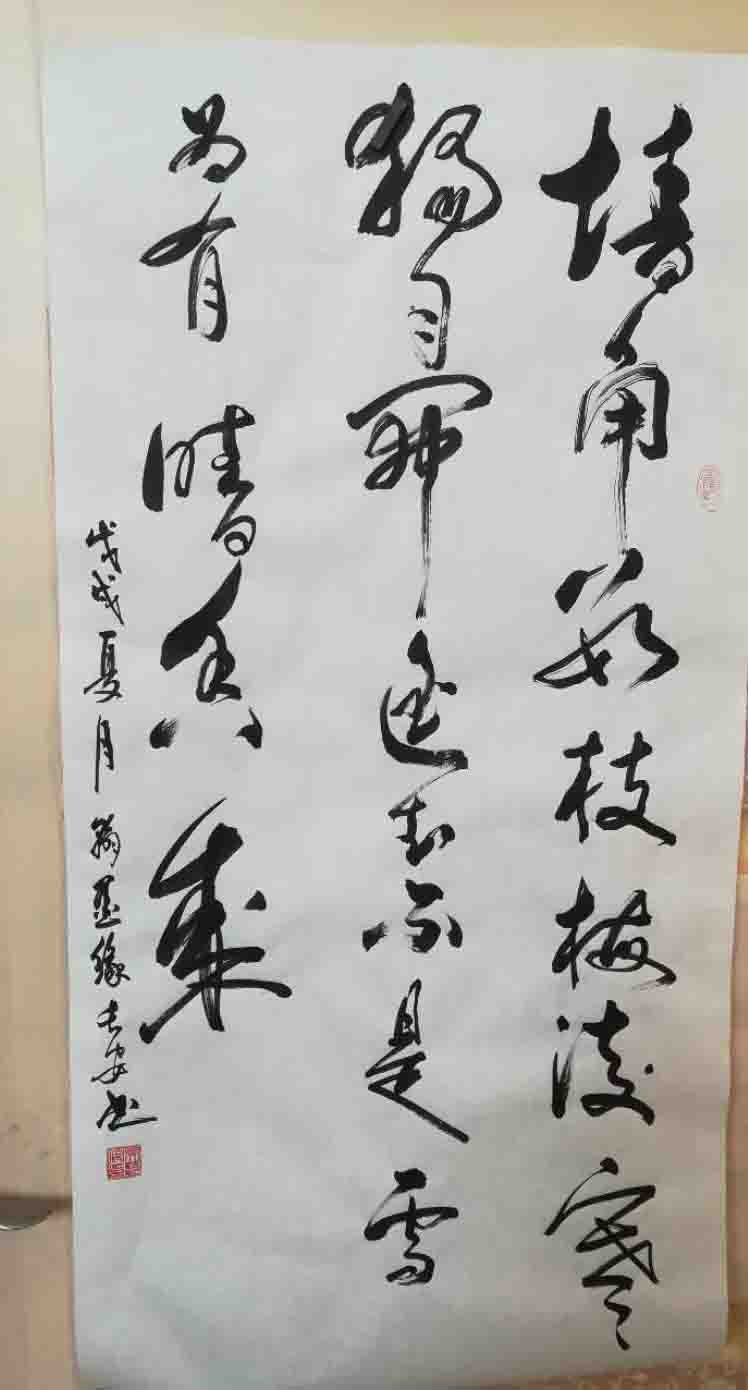 墙角数枝梅凌寒
独自開遥知不是雪
为有暗香来
戊戌夏月翰墨缘长安书